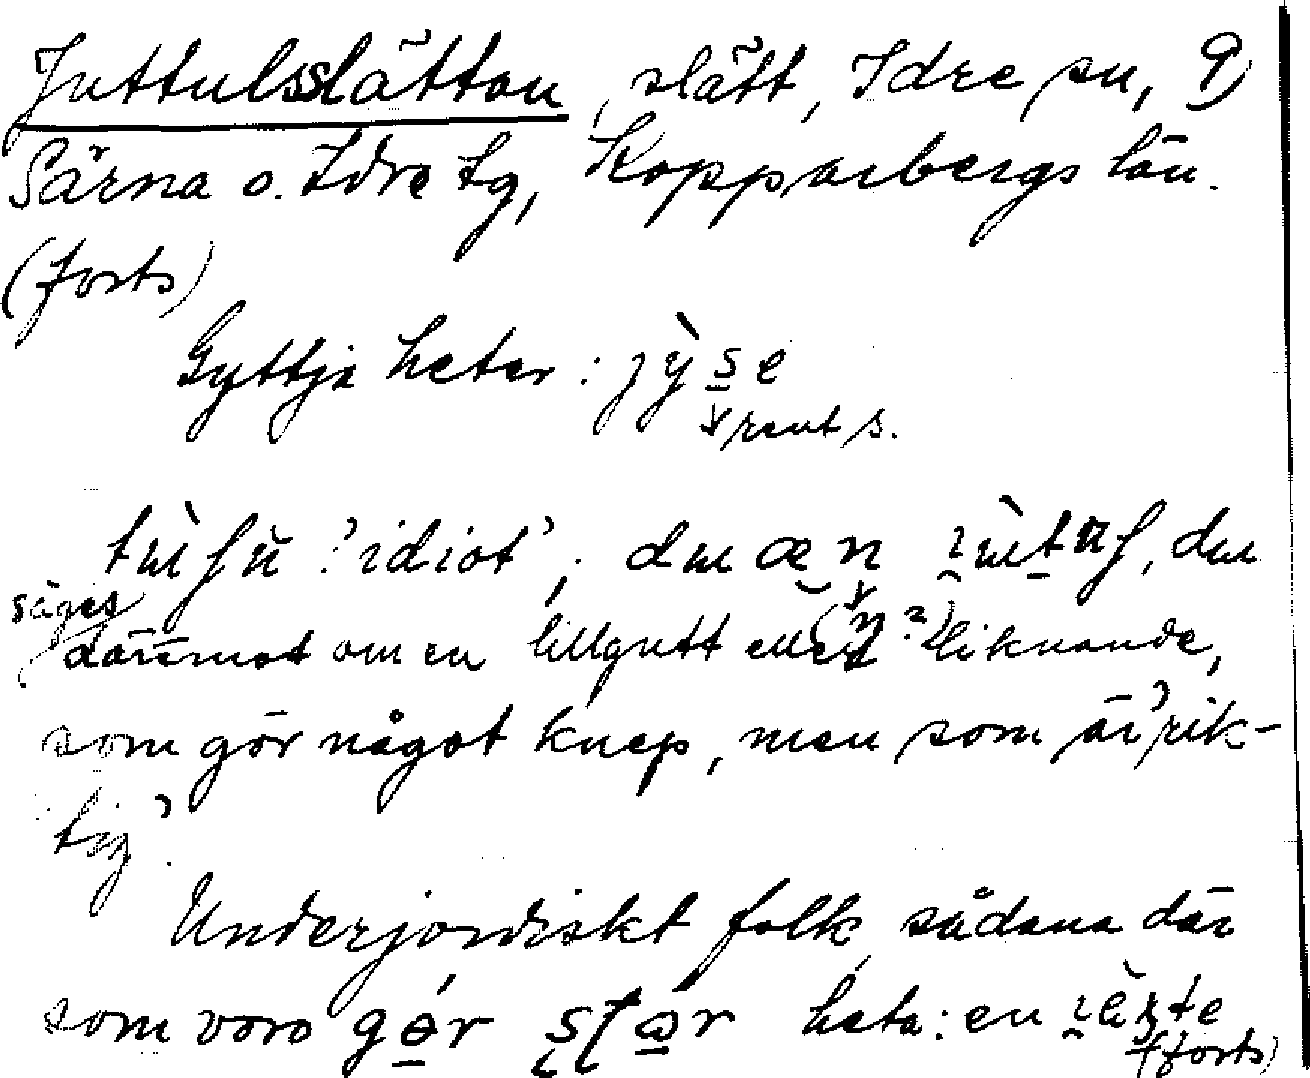 Juttulsslätten, slätt, Idre sn, 9)
Särna o. Idre tg, Kopparbergs län.
(forts)
Gyttja heter: jỳse
rent s.
'idiot', den æn den
säges
däremot om en lillgutt eller liknande,
som gör något knep, men som är 'rik-
tig'.
Underjordiskt folk, sådana där
som voro heta: en
(forts)